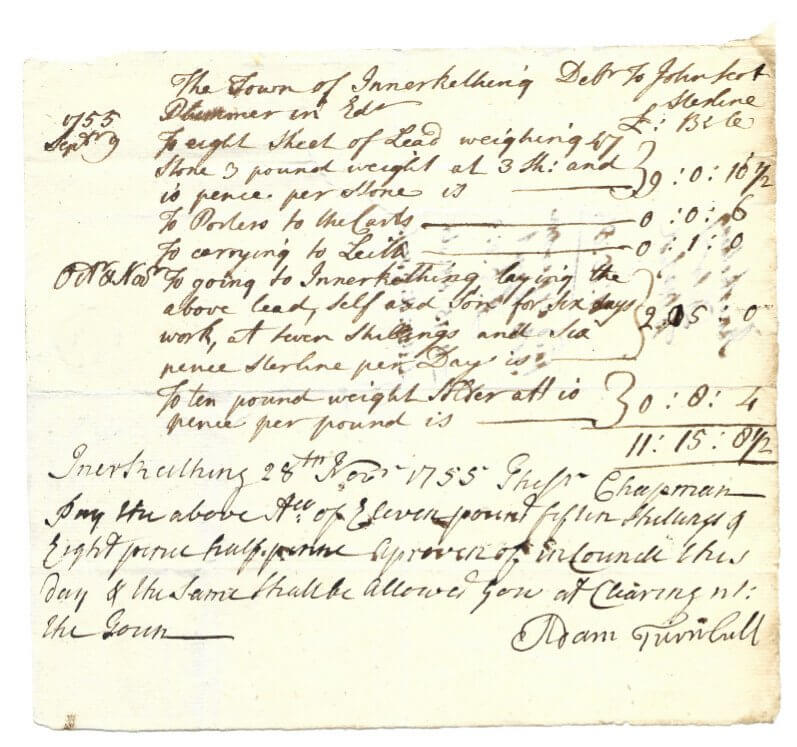 The Town of Innerkething Debr To John Scot
Plummer in Edr Sterline
1755 £: Sh: d
Septr 9 To eight Sheet of Lead weighing 47
Stone 3 pound weight at 3 Sh: and
10 pence per Stone is 9 : 0 : 10 1/2
To Porters to the Carts 0 : 0 : 6
To carrying to Leith 0 : 1 : 0
Octr & Novr To going to Innerkething laying the
above lead, self and Son for six days
work, at seven shillings and six
pence sterline per Day is 2 : 5 : 0
To ten pound weight Solder att 10
pence per pound is 0 : 8 : 4
11 : 15 : 8 1/2
Inerkeithing 28th Novr 1755 Thesr Chapman
Pay the above Acc of Eleven pound fiften Shillings &
Eight pence half penne aproven of in Councle this
day & the Same Shall be allowed you at Clearing wt:
the Toun
Adam Turnbull